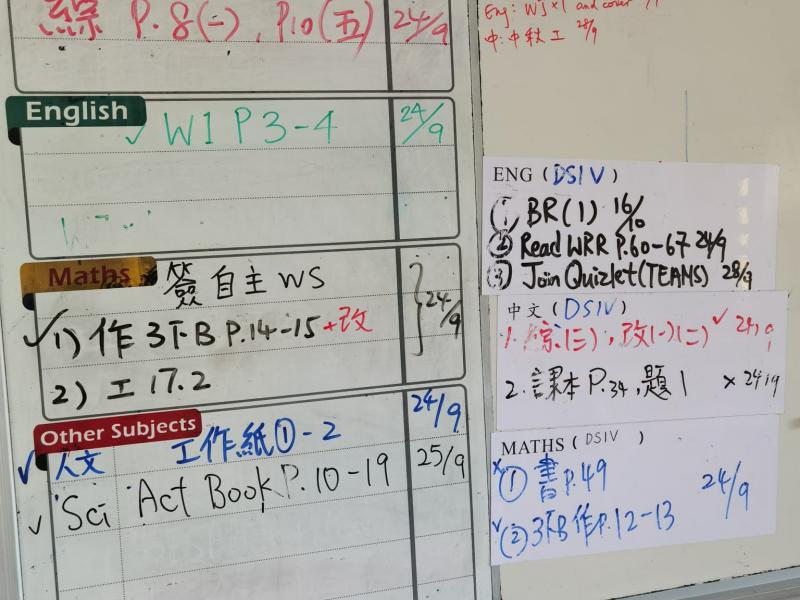 綜 P.8(一), P10(五) 24/9
English
✓ W1 P3-4 24/9
Maths
簽自主WS
✓1) 作3下B P.14-15 +改 24/9
2) 工17.2
Other Subjects
✓人文 工作紙①-2 24/9
✓ Sci Act Book P.10-19 25/9
Eng: WS×1 and cover
中: 中秋工 28/9
ENG (DSIV)
① BR(1) 16/10
② Read WRR P.60-67 24/9
③ Join Quizlet (TEAMS) 28/9
中文 (DSIV)
1. 綜(三), 改(一)(二) ✓ 24/9
2. 課本P.34, 題1 × 24/9
MATHS (DSIV)
×① 書P.49 24/9
✓(2) 3下B作P.12-13